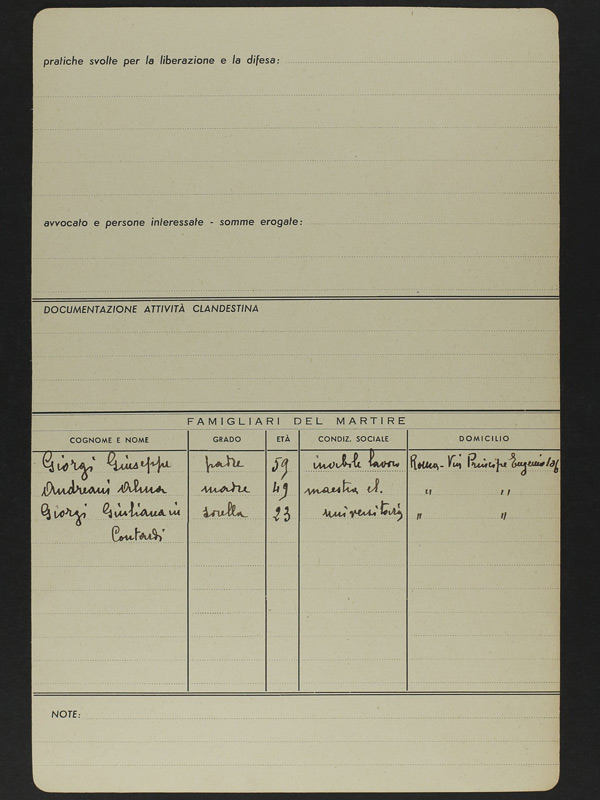 pratiche svolte per la liberazione e la difesa:
avvocato e persone interessate - somme erogate:
DOCUMENTAZIONE ATTIVITÀ CLANDESTINA
FAMIGLIARI DEL MARTIRE
COGNOME E NOME GRADO ETÀ CONDIZ. SOCIALE DOMICILIO
Giorgi Giuseppe padre 59 inabile lavoro Roma - Via Principe Eugenio
Andreani Alma madre 49 maestra el. " "
Giorgi Giuliana in sorella 23 universitaria " "
Contardi
NOTE: